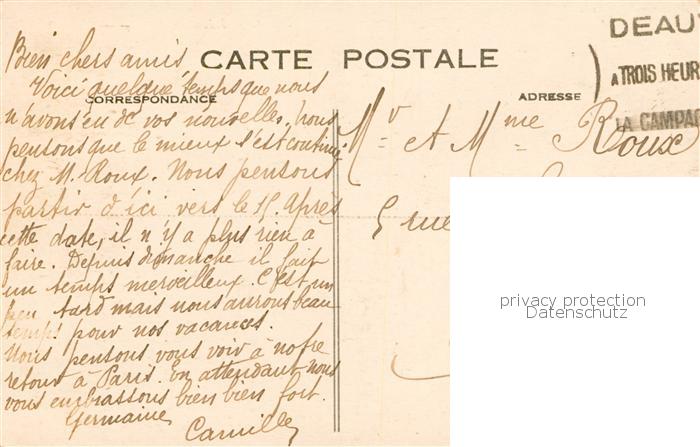 Bien chers amis
CARTE POSTALE
Voici quelque temps que nous
CORRESPONDANCE
n'avons eu de vos nouvelles. Nous
pensons que le mieux s'est continué
chez M. Roux. Nous pensons
partir d'ici vers le 15. Après
cette date, il n'y a plus rien à
faire. Depuis dimanche il fait
un temps merveilleux. C'est un
peu tard mais nous aurons beau
temps pour nos vacances.
Nous pensons vous voir à notre
retour à Paris. En attendant nous
vous embrassons bien bien fort.
Germaine
Camille
DEAU
A TROIS HEUR
LA CAMPA
ADRESSE
Mr et Mme Roux
5 rue
privacy protection
Datenschutz